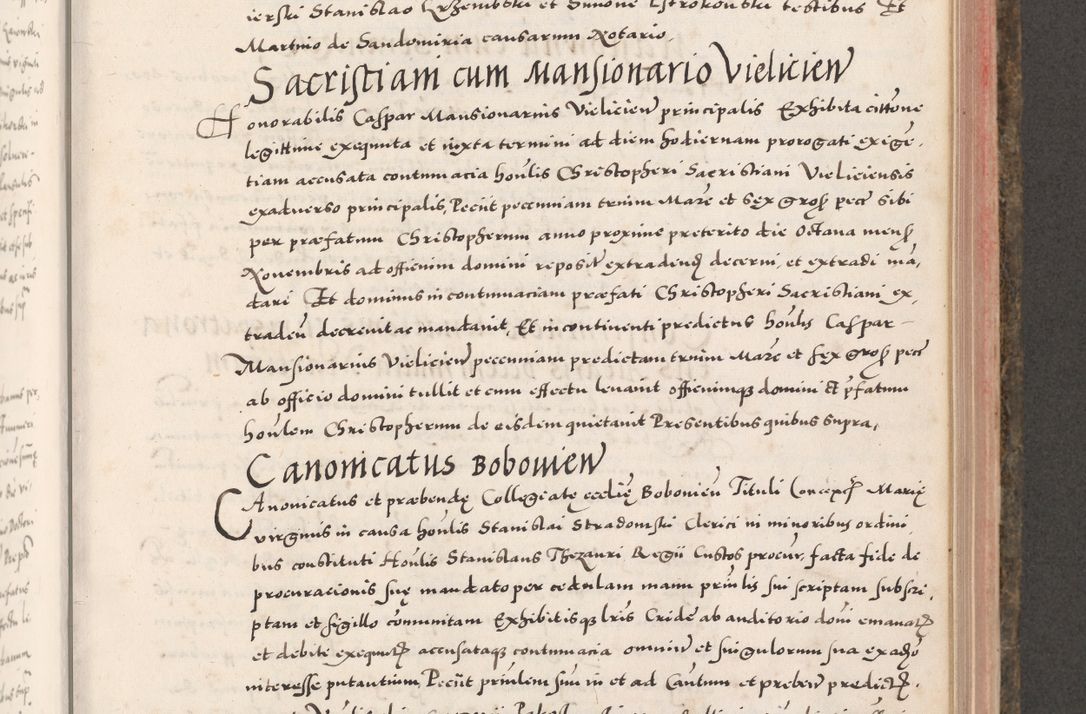 ierski Stanislao Krzembski et Simone Ostrokowski testibus Et
Martino de Sandomiria causarum Notario.
Sacristiani cum Mansionario Vielicien
Honorabilis Caspar Mansionarius Vielicien principalis Exhibita cittone
legittime exequuta et iuxta termini ad diem hodiernam prorogati exige,
tiam accusata contumacia honlis Christopheri Sacristiani Vieliciensis
exaduerso principalis, Peciit pecuniam trium Marc et sex gross pecc sibi
per præfatum Christopherum anno proxime preterito die Octaua mens
Nouembris ad officium domini reposit extradend decerni, et extradi mã,
dari Et dominus in contumaciam præfati Christopheri Sacristiani ex,
tradeñ decreuit ac mandauit, Et incontinenti predictus honlis Caspar –
Mansionarius Vielicien pecuniam predictam trium Marc et sex gross pecc
ab officio domini tullit et cum effectu leuauit officiumq domini et pfatum
honlem Christopherum de eisdem quietauit Presentibus quibus supra,
Canonicatus Bobowien
CAnonicatus et præbendę Collegiatę ecclię Bobowien Tituli Concept Marię
virginis in causa honlis Stanislai Stradomski Clerici in minoribus ordini
bus constituti Honlis Stanislaus Thezauri Regii Custos procur, facta fide de
procuracionis suę mandato per cedulam manu prinlis sui scriptam subscri,
ptam et sigillo comunitam Exhibitisq lris Cridę ab auditorio domi emanat
et debite exequut accusataq contumacia omniu et singulorum sua ex adso
interesse putantium, Peciit prinlem suu in et ad Cantum et preben predict.